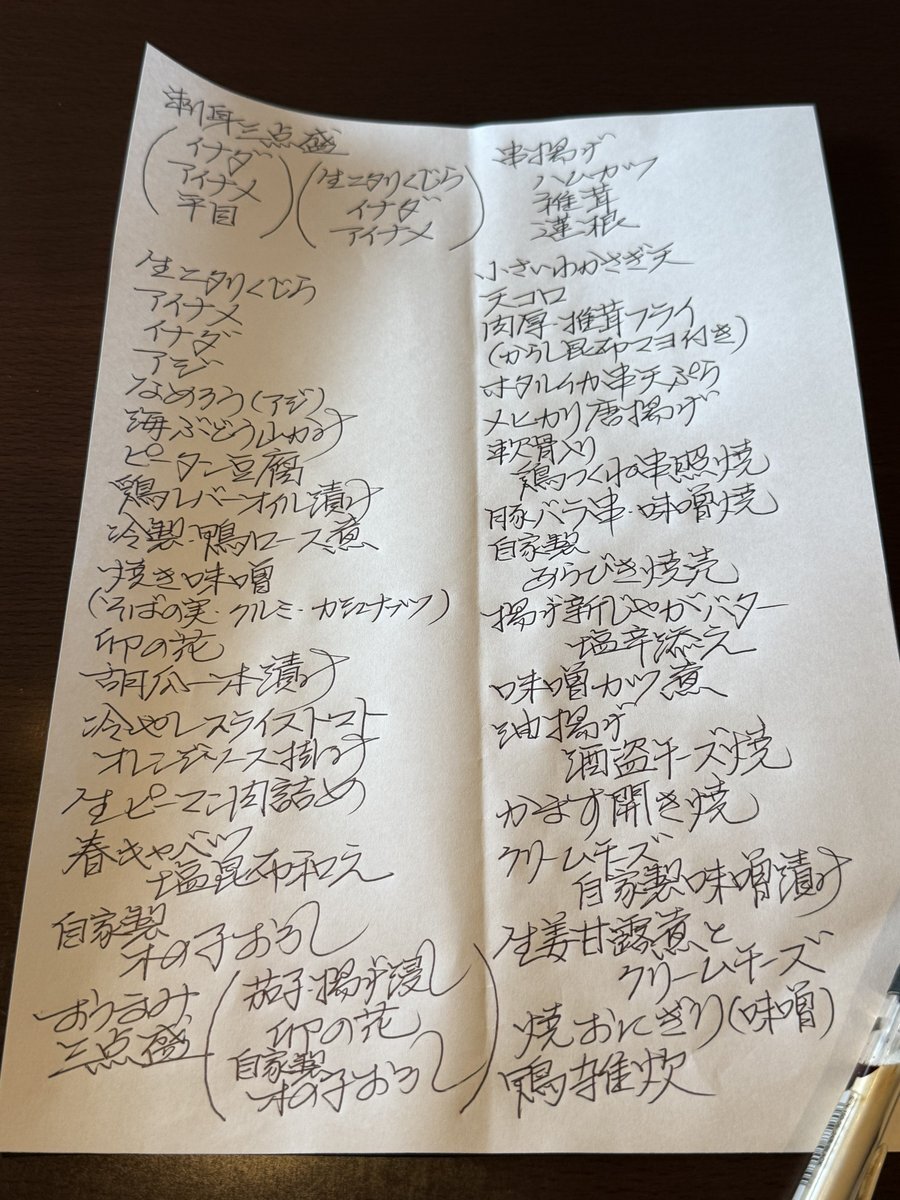 刺身三点盛
(イナダ
アイナメ
平目)
(生ニタリくじら
イナダ
アイナメ)
生ニタリくじら
アイナメ
イナダ
アジ
なめろう(アジ)
海ぶどう山かけ
ピータン豆腐
鶏レバーオイル漬け
冷製・鴨ロース煮
焼き味噌
(そばの実・クルミ・カシューナッツ)
卯の花
胡瓜一本漬け
冷やしスライストマト
オレンジソース掛け
生ピーマン肉詰め
春キャベツ
塩昆布和え
自家製
木の子おろし
おつまみ
三点盛
(茄子・揚げ浸し
卯の花
自家製
木の子おろし)
串揚げ
ハムカツ
椎茸
蓮根
小さいわかさぎ天
天コロ
肉厚・椎茸フライ
(からし昆布マヨ付き)
ホタルイカ串天ぷら
メヒカリ唐揚げ
軟骨入り
鶏つくね串照焼
豚バラ串・味噌焼
自家製
あらびき焼売
揚げ新じゃがバター
塩辛添え
味噌カツ煮
油揚げ
酒盗チーズ焼
かます開き焼
クリームチーズ
自家製味噌漬け
生姜甘露煮と
クリームチーズ
焼おにぎり(味噌)
鴨雑炊